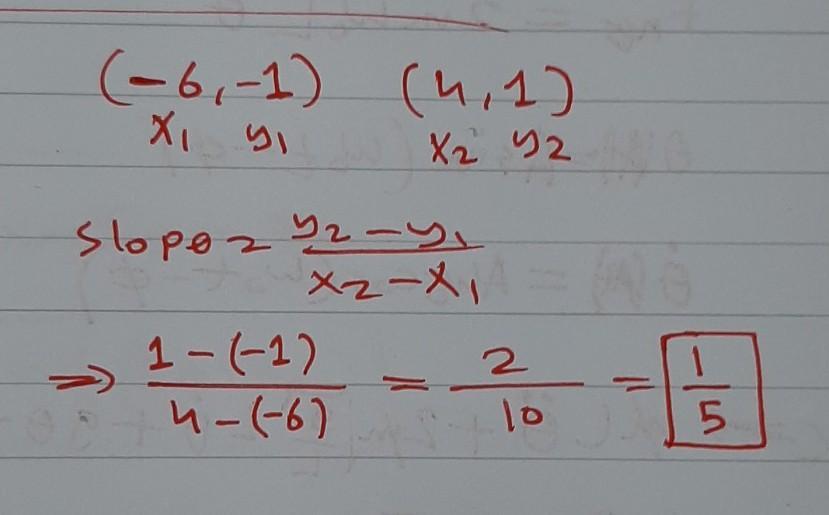 (-6,-1) (4,1)
x₁ y₁ x₂ y₂
slope = y₂ - y₁ / x₂ - x₁
⇒ 1 - (-1) / 4 - (-6) = 2 / 10 = 1 / 5